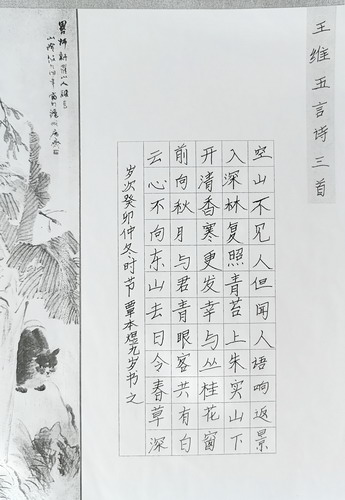 王维五言诗三首
空山不见人但闻人语响返景
入深林复照青苔上朱实山下
开清香寒更发幸与丛桂花窗
前向秋月与君青眼客共有白
云心不向东山去日令春草深
岁次癸卯仲冬时节覃本煜九岁书之